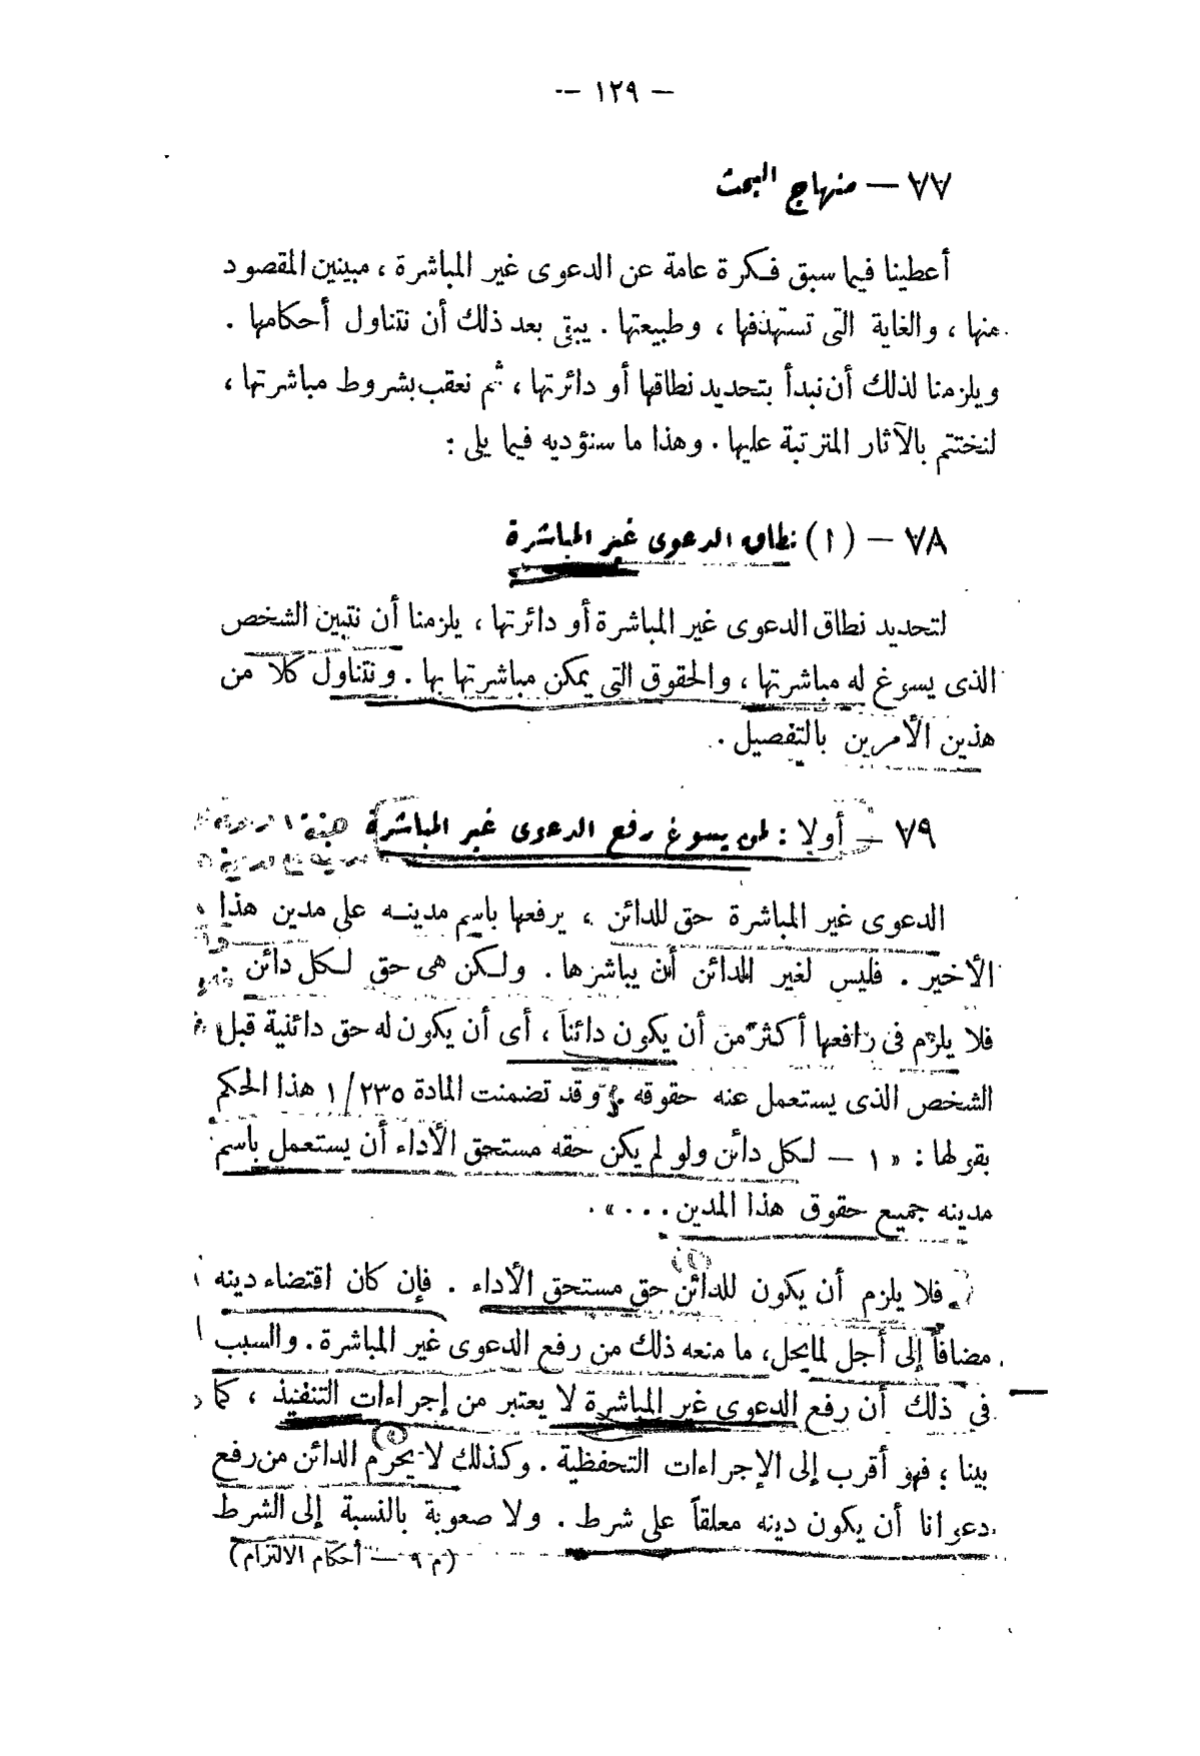 — ١٢٩ —
٧٧ — منهاج البحث
أعطينا فيما سبق فكرة عامة عن الدعوى غير المباشرة ، مبينين المقصود
منها ، والغاية التى تستهدفها ، وطبيعتها . يبقى بعد ذلك أن نتناول أحكامها .
ويلزمنا لذلك أن نبدأ بتحديد نطاقها أو دائرتها ، ثم نعقب بشروط مباشرتها ،
لنختتم بالآثار المترتبة عليها . وهذا ما سنؤديه فيما يلى :
٧٨ — (١) نطاق الدعوى غير المباشرة
لتحديد نطاق الدعوى غير المباشرة أو دائرتها ، يلزمنا أن نتبين الشخص
الذى يسوغ له مباشرتها ، والحقوق التى يمكن مباشرتها بها . ونتناول كلا من
هذين الأمرين بالتفصيل .
٧٩ — أولا : لمن يسوغ رفع الدعوى غير المباشرة
الدعوى غير المباشرة حق للدائن ، يرفعها باسم مدينه على مدين هذا
الأخير . فليس لغير الدائن أن يباشرها . ولكن هى حق لكل دائن
فلا يلزم فى رافعها أكثر من أن يكون دائناً ، أى أن يكون له حق دائنية قبل
الشخص الذى يستعمل عنه حقوقه وقد تضمنت المادة ٢٣٥/١ هذا الحكم
بقولها : « ١ — لكل دائن ولو لم يكن حقه مستحق الأداء أن يستعمل باسم
مدينه جميع حقوق هذا المدين . . . » .
فلا يلزم أن يكون للدائن حق مستحق الأداء . فإن كان اقتضاء دينه
مضافاً إلى أجل لما يحل ، ما منعه ذلك من رفع الدعوى غير المباشرة . والسبب
فى ذلك أن رفع الدعوى غير المباشرة لا يعتبر من إجراءات التنفيذ ، كما
بينا ؛ فهو أقرب إلى الإجراءات التحفظية . وكذلك لا يحرم الدائن من رفع
دعوانا أن يكون دينه معلقاً على شرط . ولا صعوبة بالنسبة إلى الشرط
(م ٩ — أحكام الالتزام)